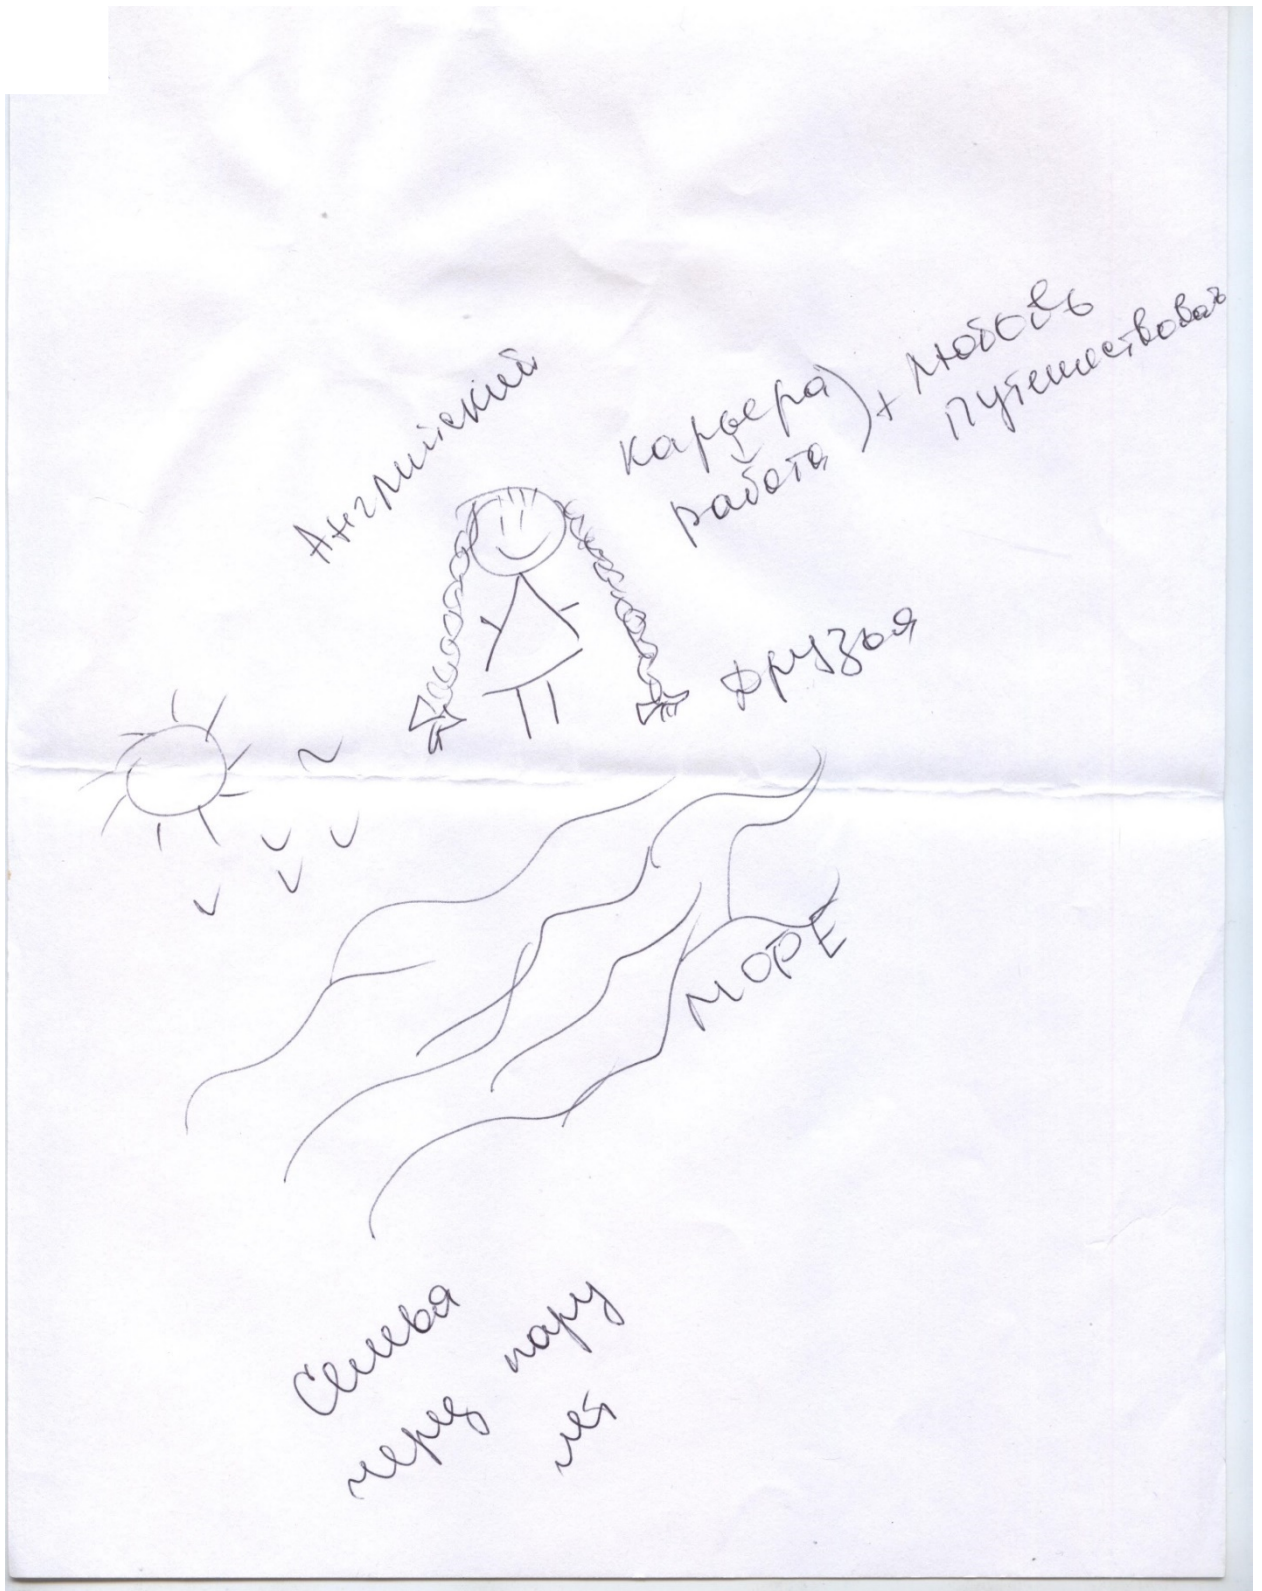 Английский
Карьера) + Любовь
работа
Путешествовать
Друзья
МОРЕ
Семья
через пару
лет